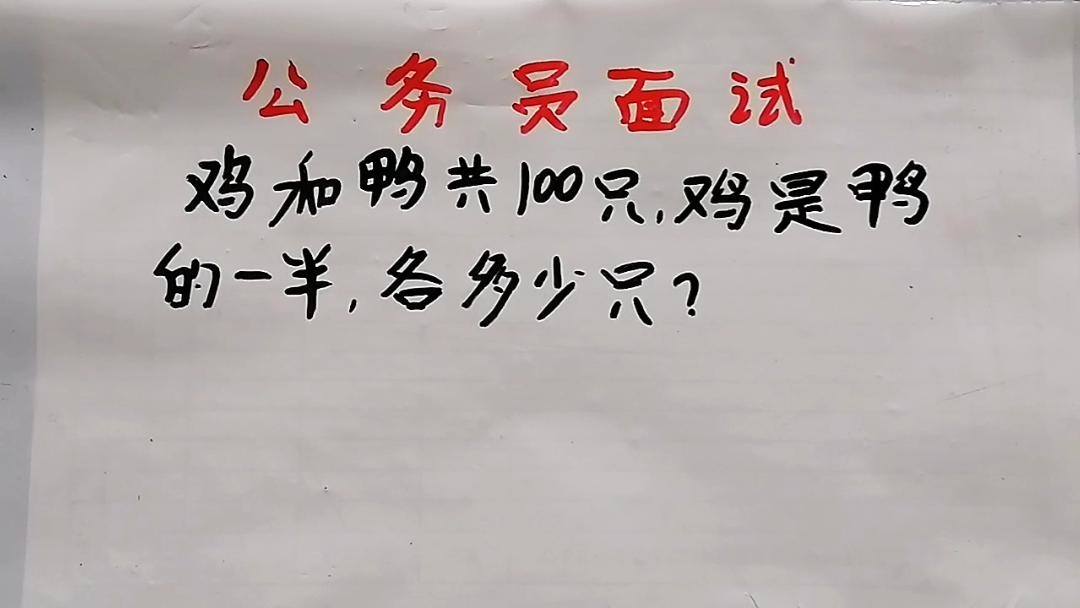 公务员面试
鸡和鸭共100只,鸡是鸭
的一半,各多少只?